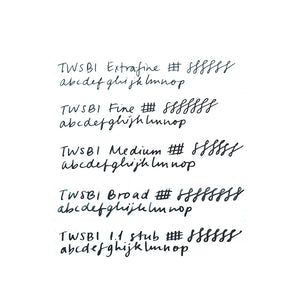 TWSBI Extrafine ## ssssss
abcdefghijklmnop
TWSBI Fine ## sssssss
abcdefghijklmnop
TWSBI Medium ## ssssss
abcdefghijklmnop
TWSBI Broad ## ssssssss
abcdefghijklmnop
TWSBI 1.1 stub ## ssssss
abcdefghijklmnop